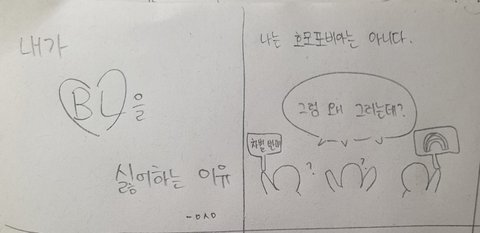 내가
BL을
싫어하는 이유
나는 호모포비아는 아니다.
그럼 왜 그러는데?
차별 반대
?
?